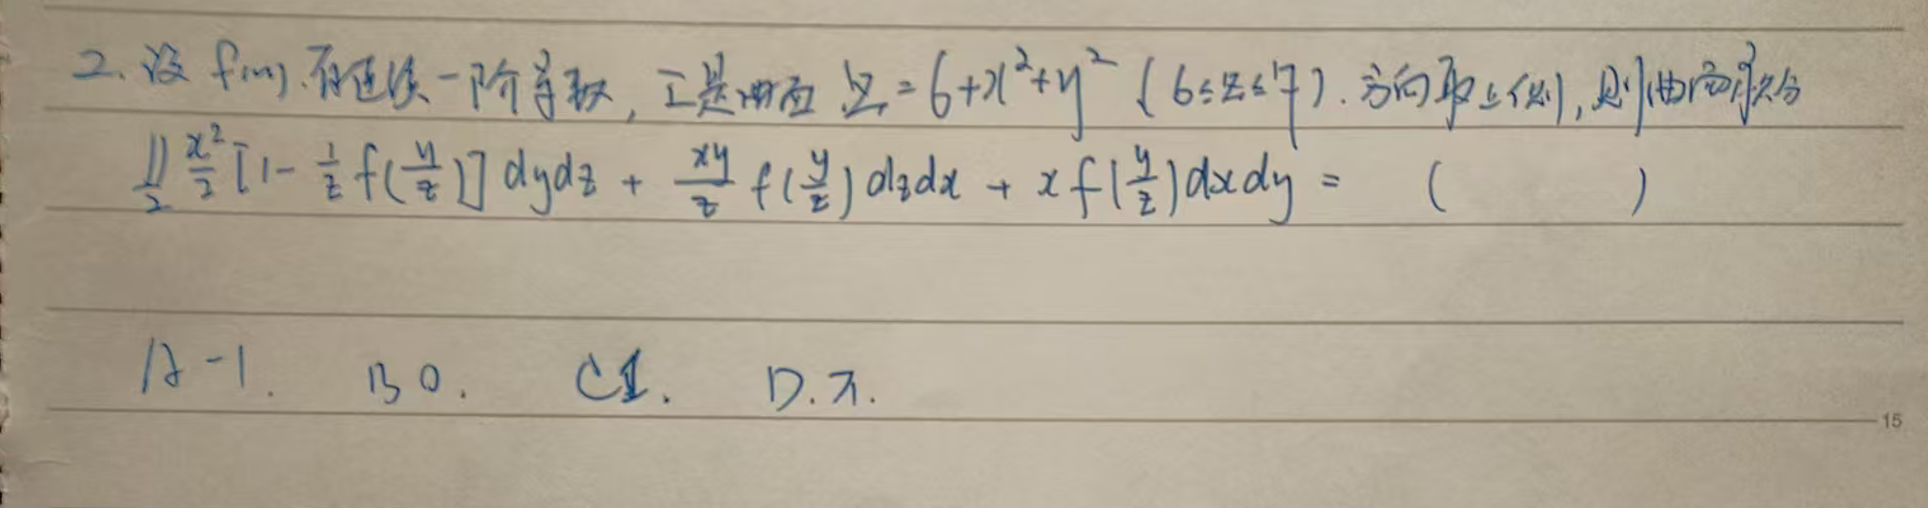 2. 设 f(u). 有连续一阶导数, Σ是曲面 Σ: z=6+x²+y² (6≤z≤7). 方向取上侧, 则曲面积分
∬_Σ x²/2 [1 - 1/z f(y/z)] dydz + xy/z f(y/z) dzdx + x f(y/z) dxdy = ( )
A -1. B 0. C 1. D. π.
15